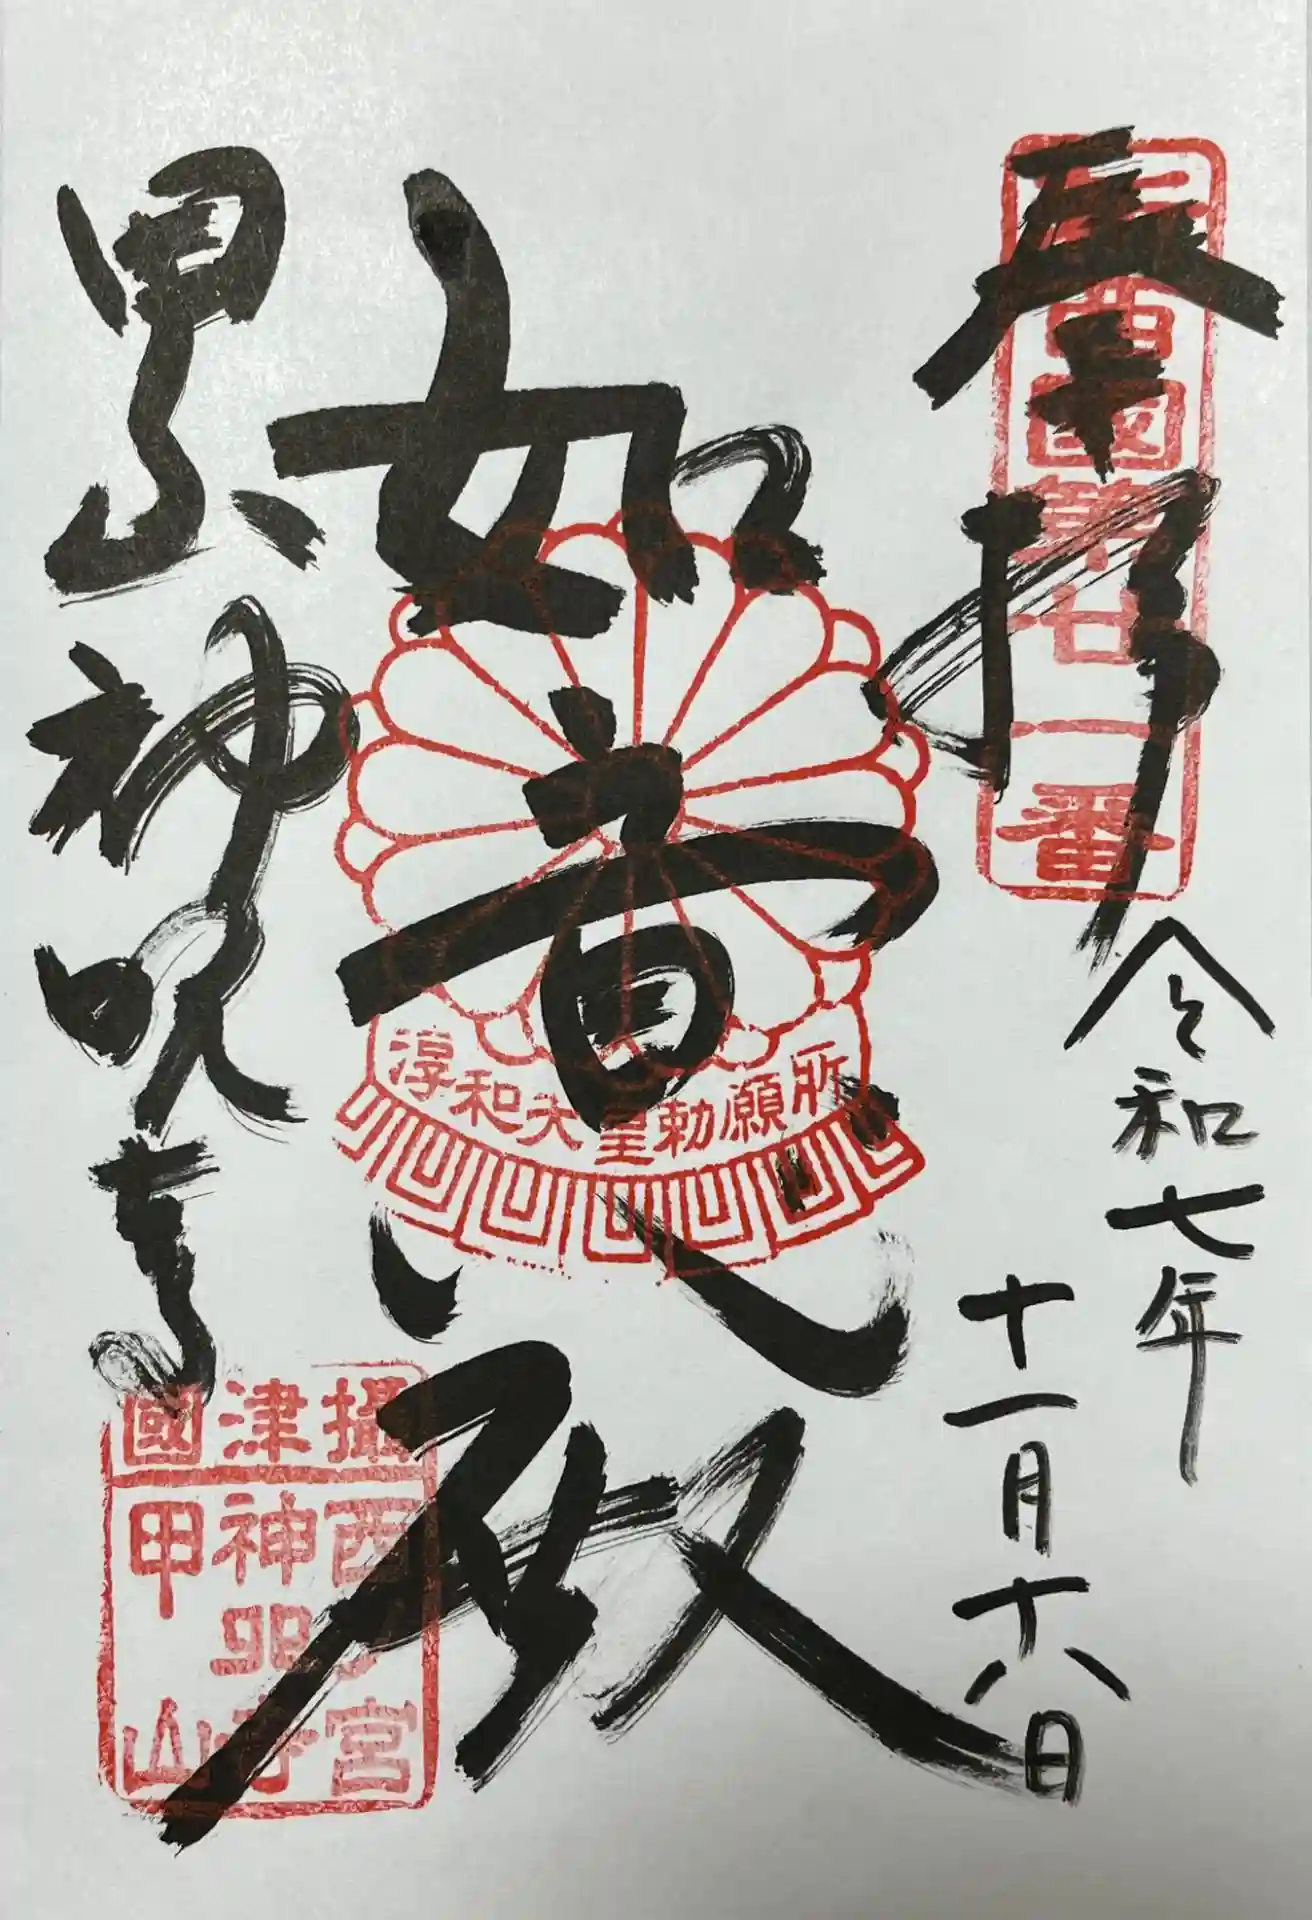 奉拝
西國第廿一番
令和七年
十一月十八日
如意殿
淳和天皇勅願所
甲山
神呪寺
攝津國
西宮
神呪寺
甲山